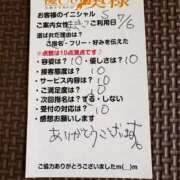 お客様のイニシャル S
ご案内女性 ご利用日 7/6
選ばれた理由は?
ご指名・フリー・好みを伝えた
☆点数は10点満点です☆
・容姿は? 10 ・優しさは? 10
・接客態度は? 10
・サービスは? 10
・ご満足度は? 10
・次回指名は? する・しない
・受付の対応は? 10
感想お願いします
ありがとうございます
ご協力ありがとうございましたm(__)m